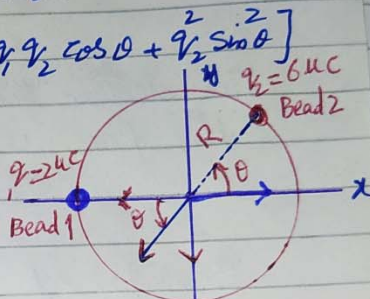 q₁q₂ cosθ + q₂² sin²θ]
y
q₂ = 6 μC
Bead 2
R
θ
q = 2 μC
x
θ
Bead 1